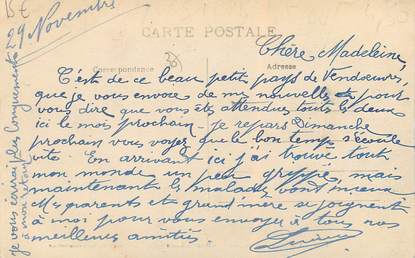 5€
29 Novembre
CARTE POSTALE
Correspondance
Adresse
Chère Madeleine,
C'est de ce beau petit pays de Vendoeuvres
que je vous envoie de mes nouvelles et pour
vous dire que vous êtes attendues toutes les deux
ici le mois prochain - je repars Dimanche
prochain vous voyez que le bon temps s'écoule
vite En arrivant ici j'ai trouvé tout
mon monde un peu grippé mais
maintenant les malades vont mieux
Mes parents et grand'mère se joignent
à moi pour vous envoyer à tous nos
meilleures amitiés
je vous écrirai plus longuement
à mon retour